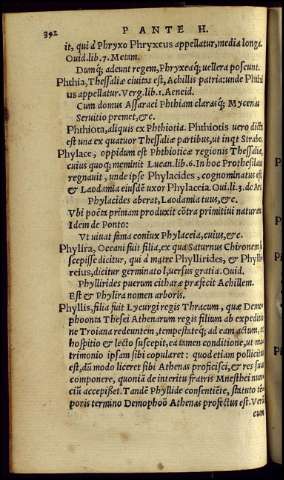 392 PANTE H.
it, qui à Phryxo Phryxeus appellatur, media longa.
Ouid. lib. 7. Metam.
Dumq; adeunt regem, Phryxeaq; uellera poscunt.
Phthia, Thessaliæ ciuitas est, Achillis patria: unde Phthi
us appellatur. Verg. lib. 1. Aeneid.
Cum domus Assaraci Phthiam clarasq; Mycenas
Seruitio premet, &c.
Phthiota, aliquis ex Phthiotia. Phthiotis uero dicta
est una ex quatuor Thessaliæ partibus, ut inqt Strabo.
Phylace, oppidum est Phthioticæ regionis Thessaliæ,
cuius quoq; meminit Lucan. lib. 6. In hoc Prothesilaus
regnauit, unde ipse Phylacides, cognominatus est
& Laodamia eiusdē uxor Phylaceia. Oui. li. 3. de Ar.
Phylacides aberat, Laodamia tuus, &c.
Vbi poëta primam produxit cōtra primitiui naturam
Idem de Ponto:
Vt uiuat fama coniux Phylaceia, cuius, &c.
Phyllira, Oceani fuit filia, ex qua Saturnus Chironem
scepisse dicitur, qui à matre Phyllirides, & Phylli
reius, dicitur germinato l, uersus gratia. Ouid.
Phyllirides puerum cithara præfecit Achillem.
Est & Phylira nomen arboris.
Phyllis, filia fuit Lycurgi regis Thracum, quæ Demo
phoonta Thesei Athenarum regis filium ab expeditio
ne Troiana redeuntem, tempestateq; ad eam actum,
hospitio & lecto suscepit, ea tamen conditione, ut ma
trimonio ipsam sibi copularet: quod etiam pollicitus
est, dū modo liceret sibi Athenas proficisci, & res suas
componere, quoniā de interitu fratris Mnesthei nun
ciū accepisset. Tandē Phyllide consentiēte, statuto tē
poris termino Demophoō Athenas profectus est. Verū
cum